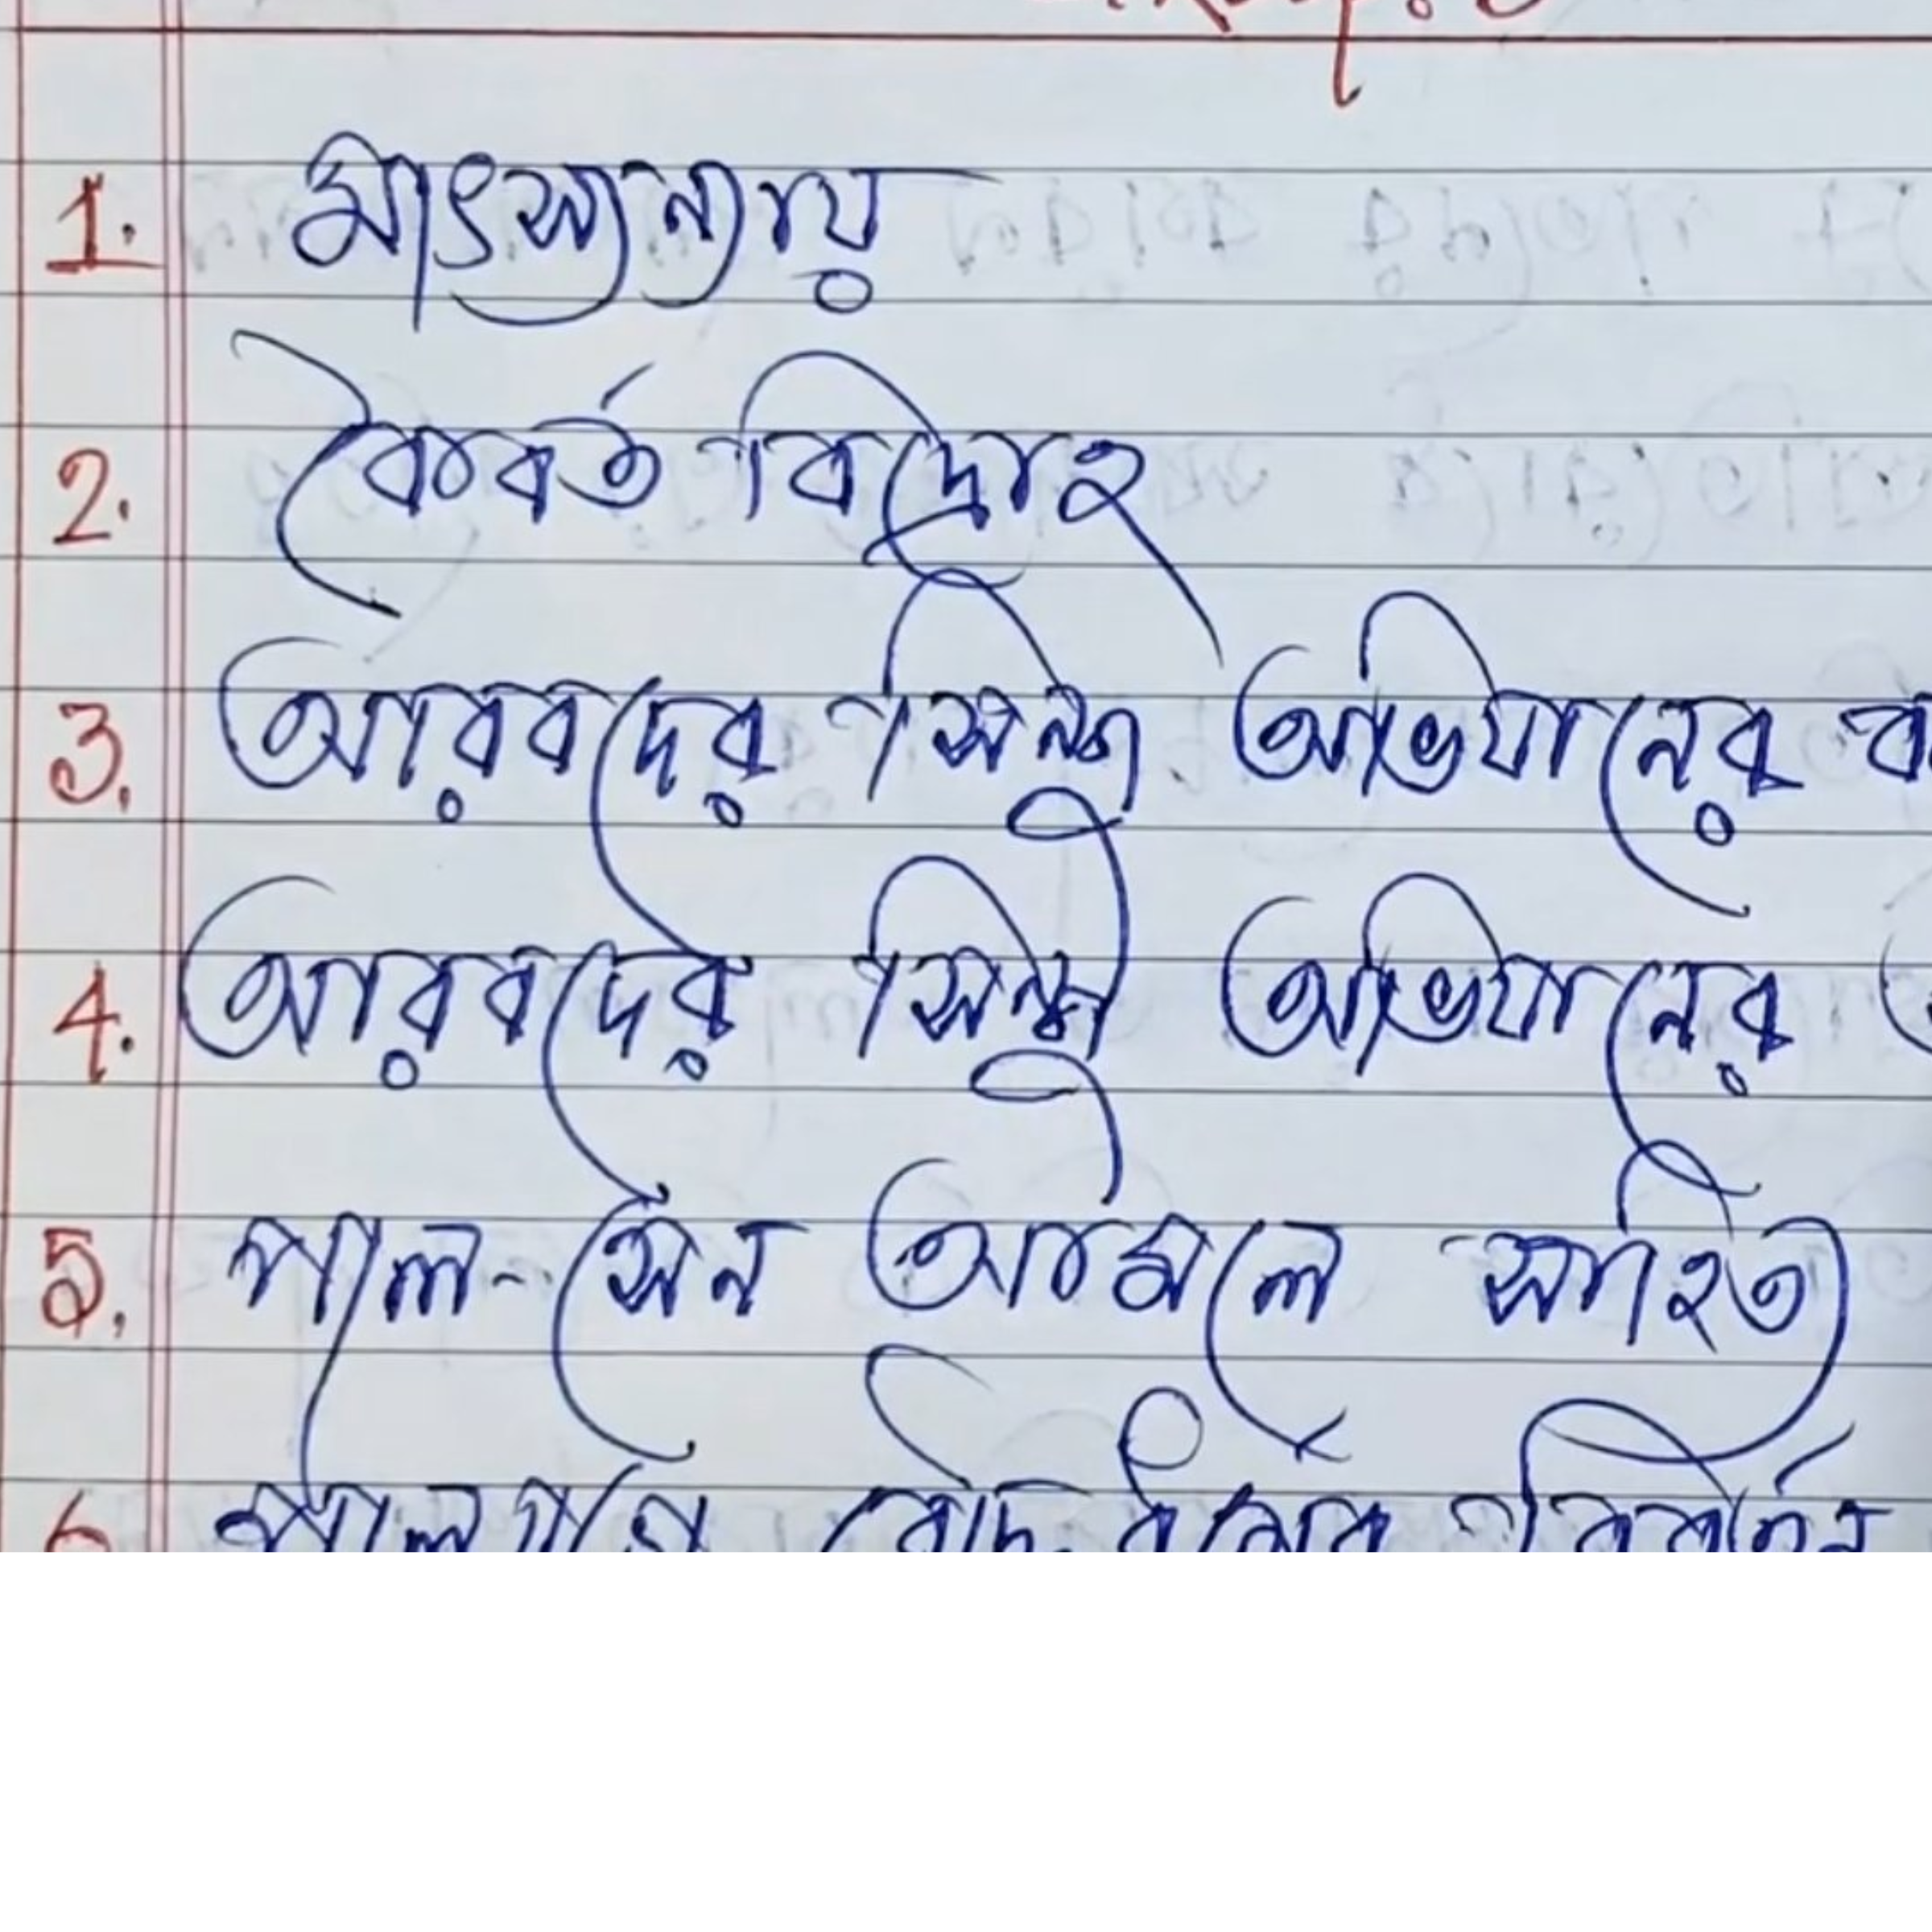 1. মাৎস্যন্যায়
2. কৈবর্ত বিদ্রোহ
3. আরবদের সিন্ধু অভিযানের
4. আরবদের সিন্ধু অভিযানের
5. পাল-সেন আমলে সাহিত্য